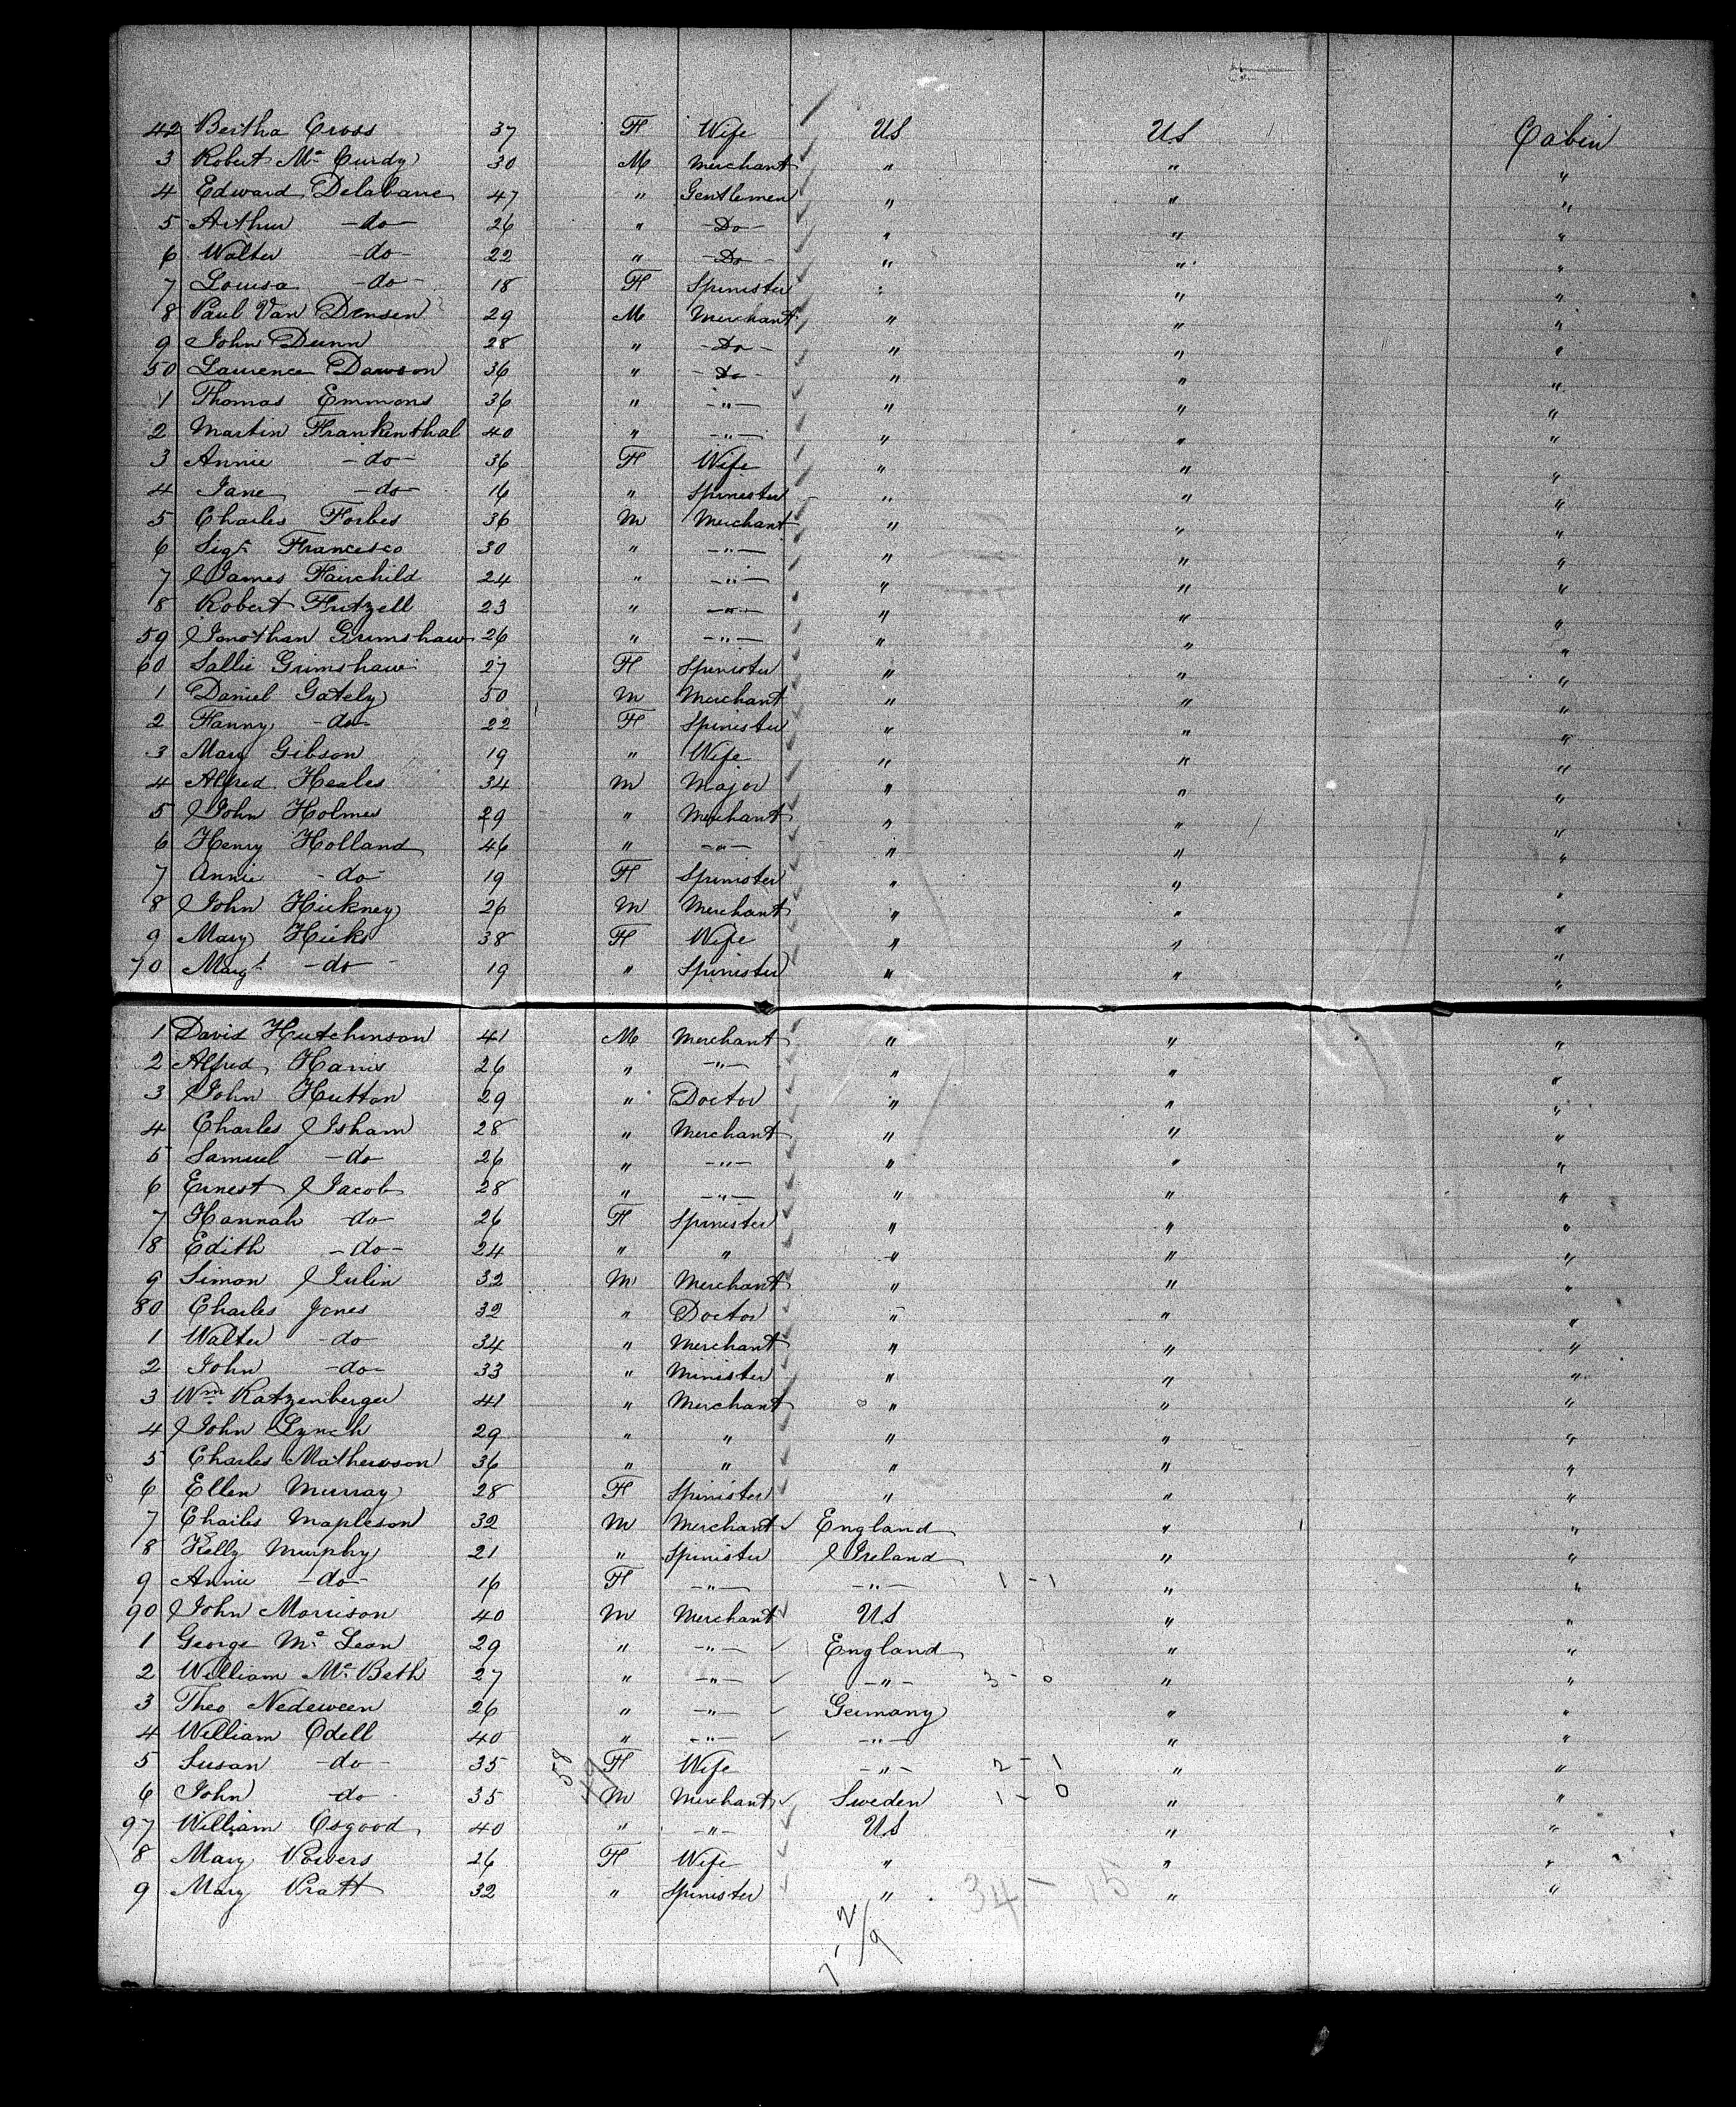 42 Bertha Cross 37 F Wife US US Cabin
3 Robert Mc Curdy 30 M Merchant " " "
4 Edward Delabarre 47 " Gentlemen " " "
5 Arthur -do- 26 " -Do- " " "
6 Walter -do- 22 " -Do- " " "
7 Louisa -do- 18 F Spinister " " "
8 Paul Van Densen 29 M Merchant " " "
9 John Dunn 28 " -Do- " " "
50 Laurence Dawson 36 " -Do- " " "
1 Thomas Emmons 36 " -"- " " "
2 Martin Frankinthal 40 " -"- " " "
3 Annie -do- 36 F Wife " " "
4 Jane -do- 16 " Spinester " " "
5 Charles Forbes 36 M Merchant " " "
6 Sigr Francesco 30 " -"- " " "
7 James Fairchild 24 " -"- " " "
8 Robert Frutzell 23 " -"- " " "
59 Jonothan Grimshaw 26 " -"- " " "
60 Sallie Grimshaw 27 F Spinister " " "
1 Daniel Gately 50 M Merchant " " "
2 Fanny -do- 22 F Spinister " " "
3 Mary Gibson 19 " Wife " " "
4 Alfred Heales 34 M Major " " "
5 John Holmes 29 " Merchant " " "
6 Henry Holland 46 " -"- " " "
7 Annie -do- 19 F Spinister " " "
8 John Hickney 26 M Merchant " " "
9 Mary Hicks 38 F Wife " " "
70 Margt -do- 19 " Spinister " " "
1 David Hutchinson 41 M Merchant " " "
2 Alfred Harris 26 " -"- " " "
3 John Hutton 29 " Doctor " " "
4 Charles Isham 28 " Merchant " " "
5 Samuel -do- 26 " -"- " " "
6 Ernest Jacob 28 " -"- " " "
7 Hannah -do- 26 F Spinister " " "
8 Edith -do- 24 " " " " "
9 Simon Julin 32 M Merchant " " "
80 Charles Jones 32 " Doctor " " "
1 Walter -do- 34 " Merchant " " "
2 John -do- 33 " Minister " " "
3 Wm Katzenberger 41 " Merchant " " "
4 John Lynch 29 " " " " "
5 Charles Mathewson 36 " " " " "
6 Ellen Murray 28 F Spinister " " "
7 Charles Mapleson 32 M Merchant England " "
8 Kelly Murphy 21 " Spinister Ireland " "
9 Annie -do- 16 F -"- -"- 1 - 1 " "
90 John Morrison 40 M Merchant US " "
1 George Mc Lean 29 " -"- England " "
2 William Mc Beth 27 " -"- -"- 3 - 0 " "
3 Theo Nedeween 26 " -"- Germany " "
4 William Odell 40 " -"- -"- " "
5 Susan -do- 35 58 F Wife -"- 2 - 1 " "
6 John do 35 M Merchant Sweden 1 - 0 " "
97 William Osgood 40 " -"- US " "
8 Mary Powers 26 F Wife " " "
9 Mary Pratt 32 " Spinister " 34 - 15 " "